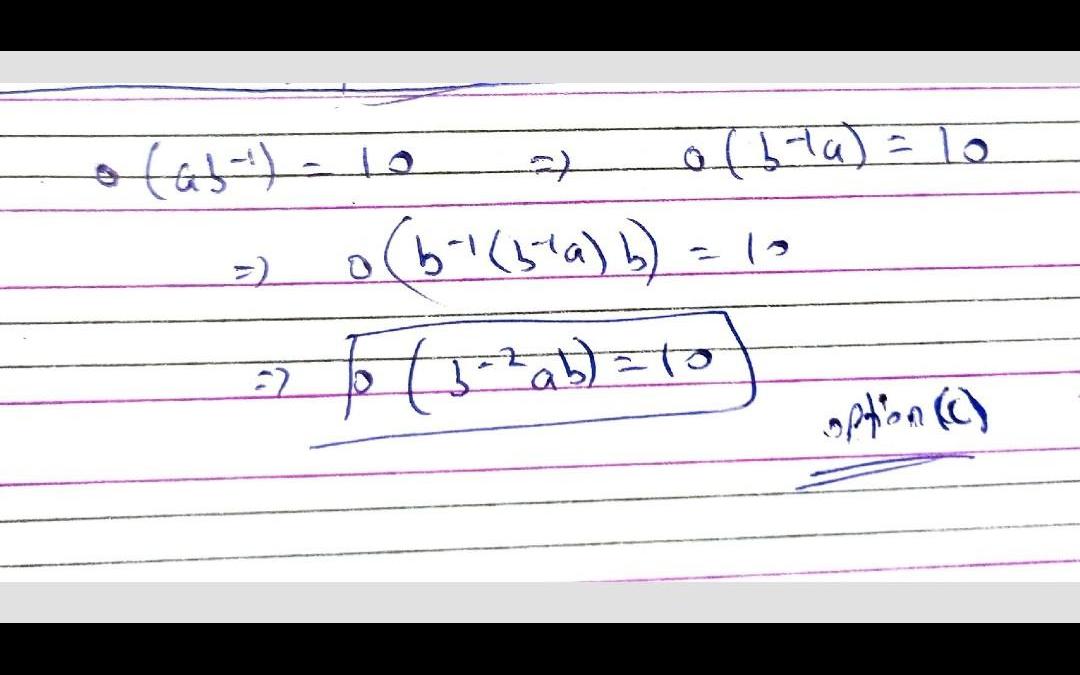 o(ab⁻¹) = 10 ⇒ o(b⁻¹a) = 10
⇒ o(b⁻¹(b⁻¹a)b) = 10
⇒ o(b⁻²ab) = 10
option (C)